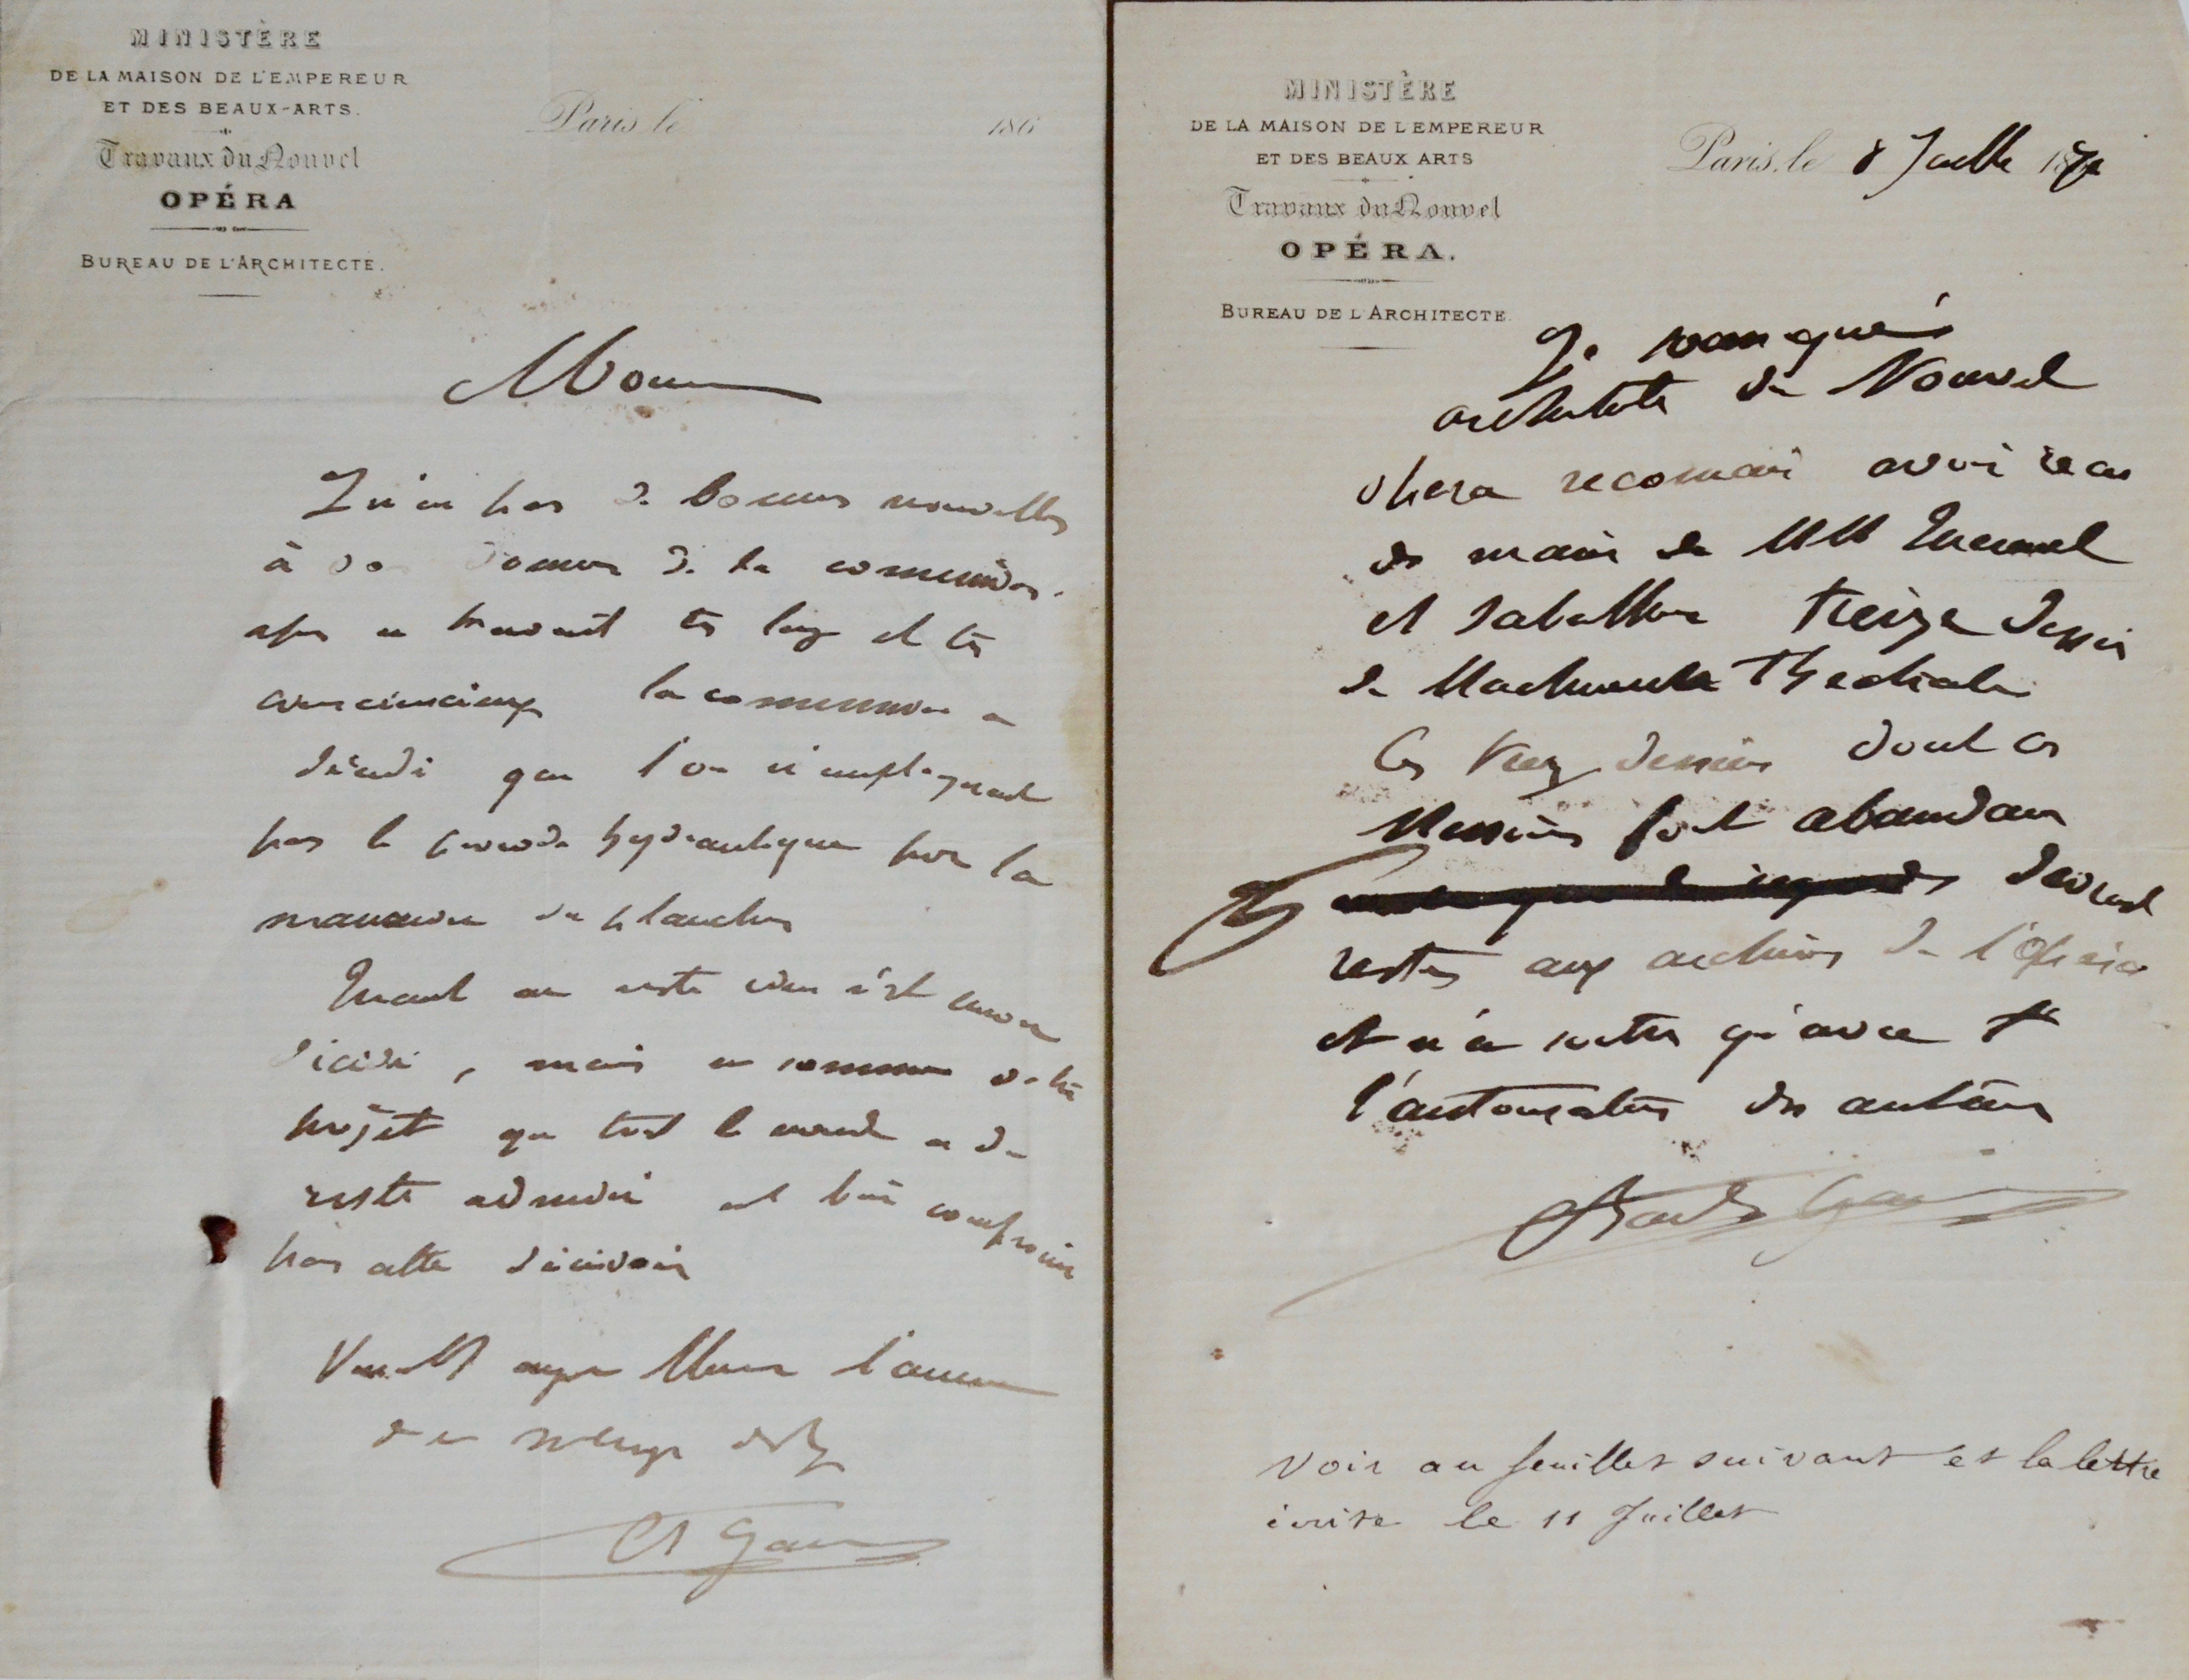 MINISTÈRE
DE LA MAISON DE L'EMPEREUR
ET DES BEAUX-ARTS.
Travaux du Nouvel
OPÉRA
BUREAU DE L'ARCHITECTE.
Paris, le 186
Monsieur
Je n'ai pas de bonnes nouvelles
à vous donner de la commission.
après un travail très long et très
consciencieux la commission a
décidé que l'on n'emploierait
pas le procédé hydraulique pour la
manœuvre des planchers
Quant au reste rien n'est encore
décidé, mais en somme votre
projet que tout le monde a du
reste admiré est bien compromis
par cette décision
Veuillez agréer Monsieur l'assurance
de mes
Ch Garnier
MINISTÈRE
DE LA MAISON DE L'EMPEREUR
ET DES BEAUX ARTS
Travaux du Nouvel
OPÉRA.
BUREAU DE L'ARCHITECTE.
Paris, le 8 Juillet 187
Je soussigné
architecte du Nouvel
opera reconnais avoir reçu
des mains de MM Quesnel
et treize dessins
de Machinerie Théatrale
Ces treize dessins dont ces
Messieurs font abandon
devront
rester aux archives de l'Opéra
et n'en sortir qu'avec
l'autorisation des auteurs
Charles Garnier
Voir au feuillet suivant et la lettre
écrite le 11 Juillet